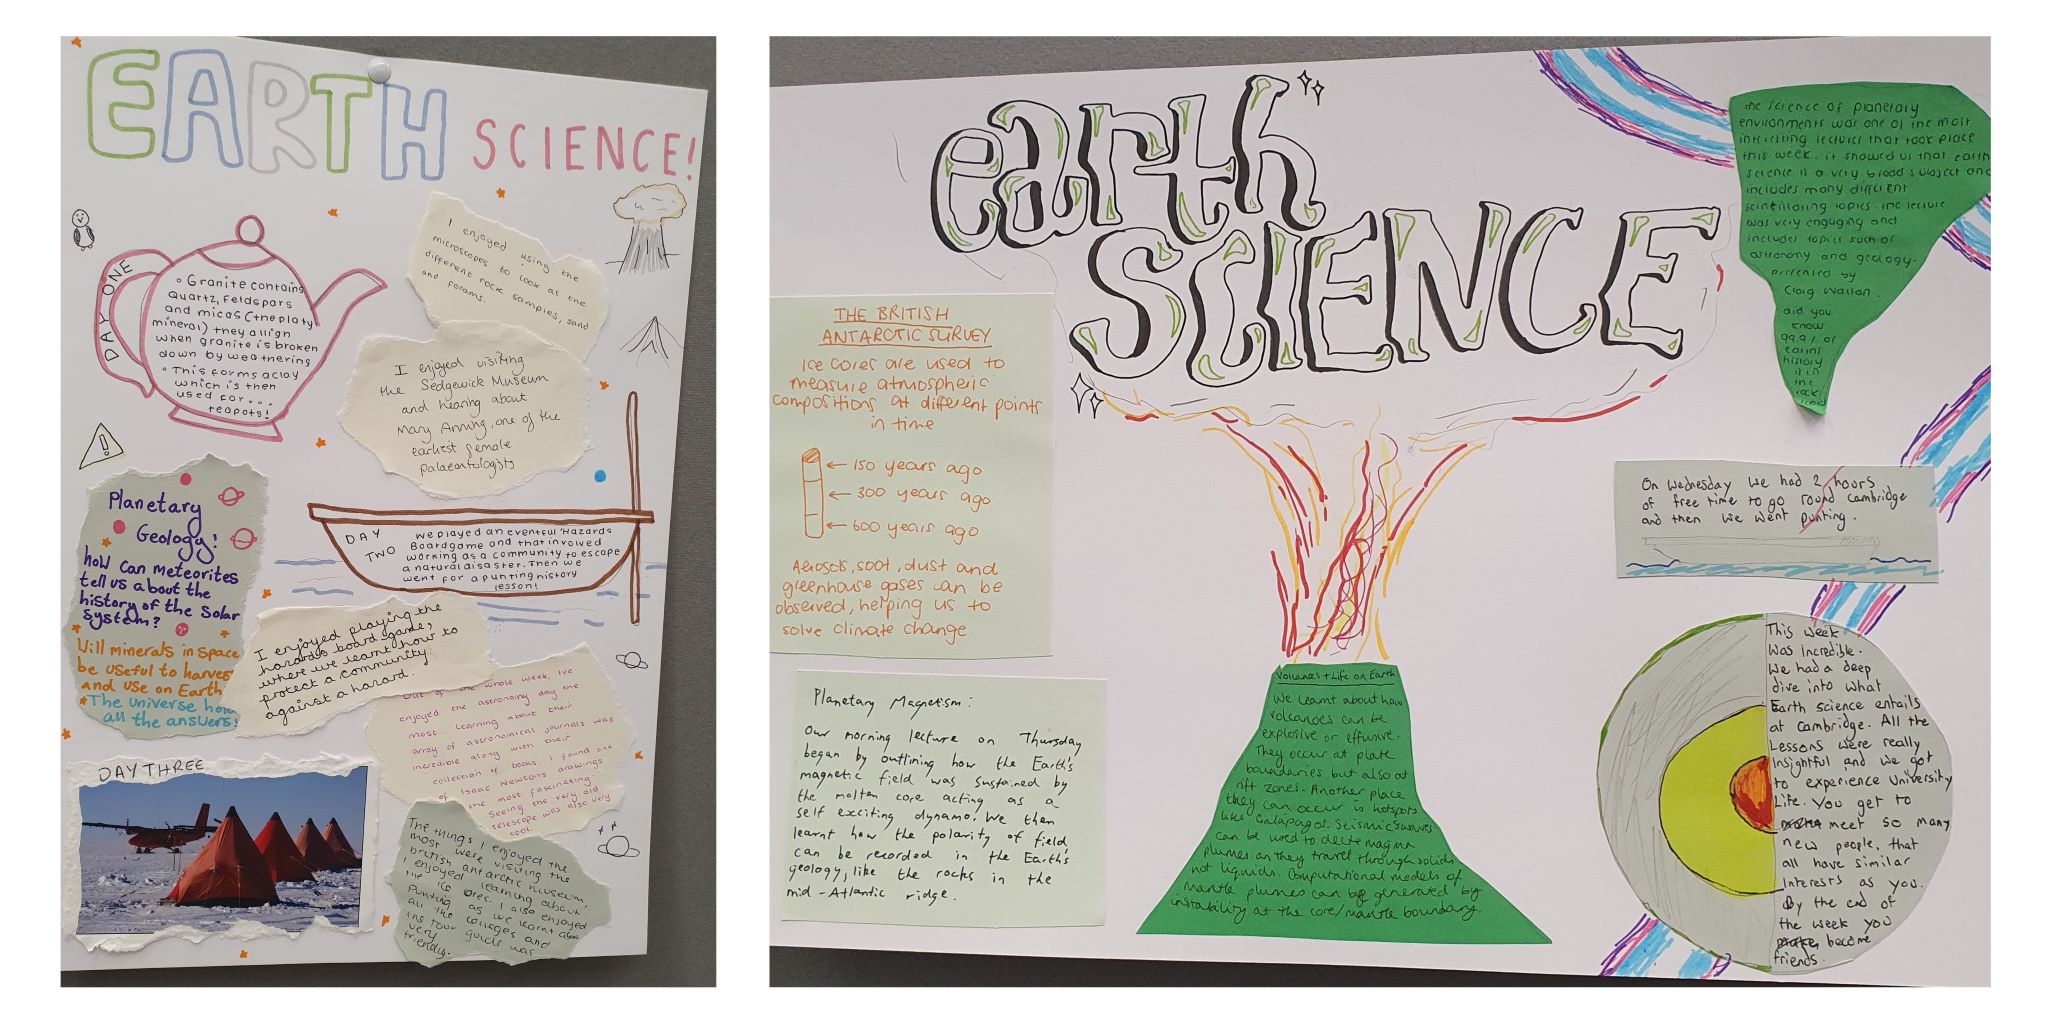 EARTH SCIENCE!
DAY ONE
• Granite contains
Quartz, feldspars
and micas (the platy
mineral) they allign
when granite is broken
down by weathering
• This forms a clay
which is then
used for...
teapots!
I enjoyed using the
microscopes to look at the
different rock samples, sand
and forams.
I enjoyed visiting
the Sedgewick Museum
and hearing about
Mary Anning, one of the
earliest female
palaeontologists
!
Planetary
Geology!
how can meteorites
tell us about the
history of the solar
system?
Will minerals in space
be useful to harvest
and use on Earth
The universe holds
all the answers!
DAY
TWO
we played an eventful 'Hazards
Boardgame and that involved
working as a community to escape
a natural disaster. Then we
went for a punting history
lesson!
I enjoyed playing the
hazards board game,
where we learnt how to
protect a community
against a hazard.
Out of the whole week, Ive
enjoyed the astronomy day the
most. Learning about their
array of astronomical journals was
incredible along with their
collection of books. I found one
of Isaac Newtons drawings
the most fascinating.
Seeing the very old
telescope was also very
cool.
DAY THREE
The things I enjoyed the
most were visiting the
british antarctic museum,
I enjoyed learning about
the ice ores. I also enjoyed
Punting as we learnt about
all the colleges and
the tour guide was
very
friendly.
earth
SCIENCE
THE BRITISH
ANTARCTIC SURVEY
Ice cores are used to
measure atmospheric
compositions at different points
in time
← 150 years ago
← 300 years ago
← 600 years ago
Aerosols, soot, dust and
greenhouse gases can be
observed, helping us to
solve climate change
Planetary Magnetism:
Our morning lecture on Thursday
began by outlining how the Earth's
magnetic field was sustained by
the molten core acting as a
self exciting dynamo. We then
learnt how the polarity of field
can be recorded in the Earth's
geology, like the rocks in the
mid-Atlantic ridge.
Volcanos + Life on Earth
We learnt about how
volcanoes can be
explosive or effusive.
They occur at plate
boundaries but also at
rift zones. Another place
they can occur is hotspots
like Galapagos. Seismic waves
can be used to detect magma
plumes as they travel through solids
not liquids. Computational models of
mantle plumes can be generated by
instability at the core/mantle boundary.
the science of planetary
environments was one of the most
intresting lectures that took place
this week. it showed us that earth
science is a very broad subject and
includes many different
scintillating topics. the lecture
was very engaging and
included topics such as
astronomy and geology.
presented by
Craig Walton.
did you
know
99.9% of
earths
history
is in
the
rock
On Wednesday we had 2 hours
of free time to go round cambridge
and then we went punting.
This week
was incredible.
We had a deep
dive into what
Earth science entails
at cambridge. All the
Lessons were really
insightful and we got
to experience University
Life. You get to
meet so many
new people, that
all have similar
interests as you.
By the end of
the week you
become
friends.